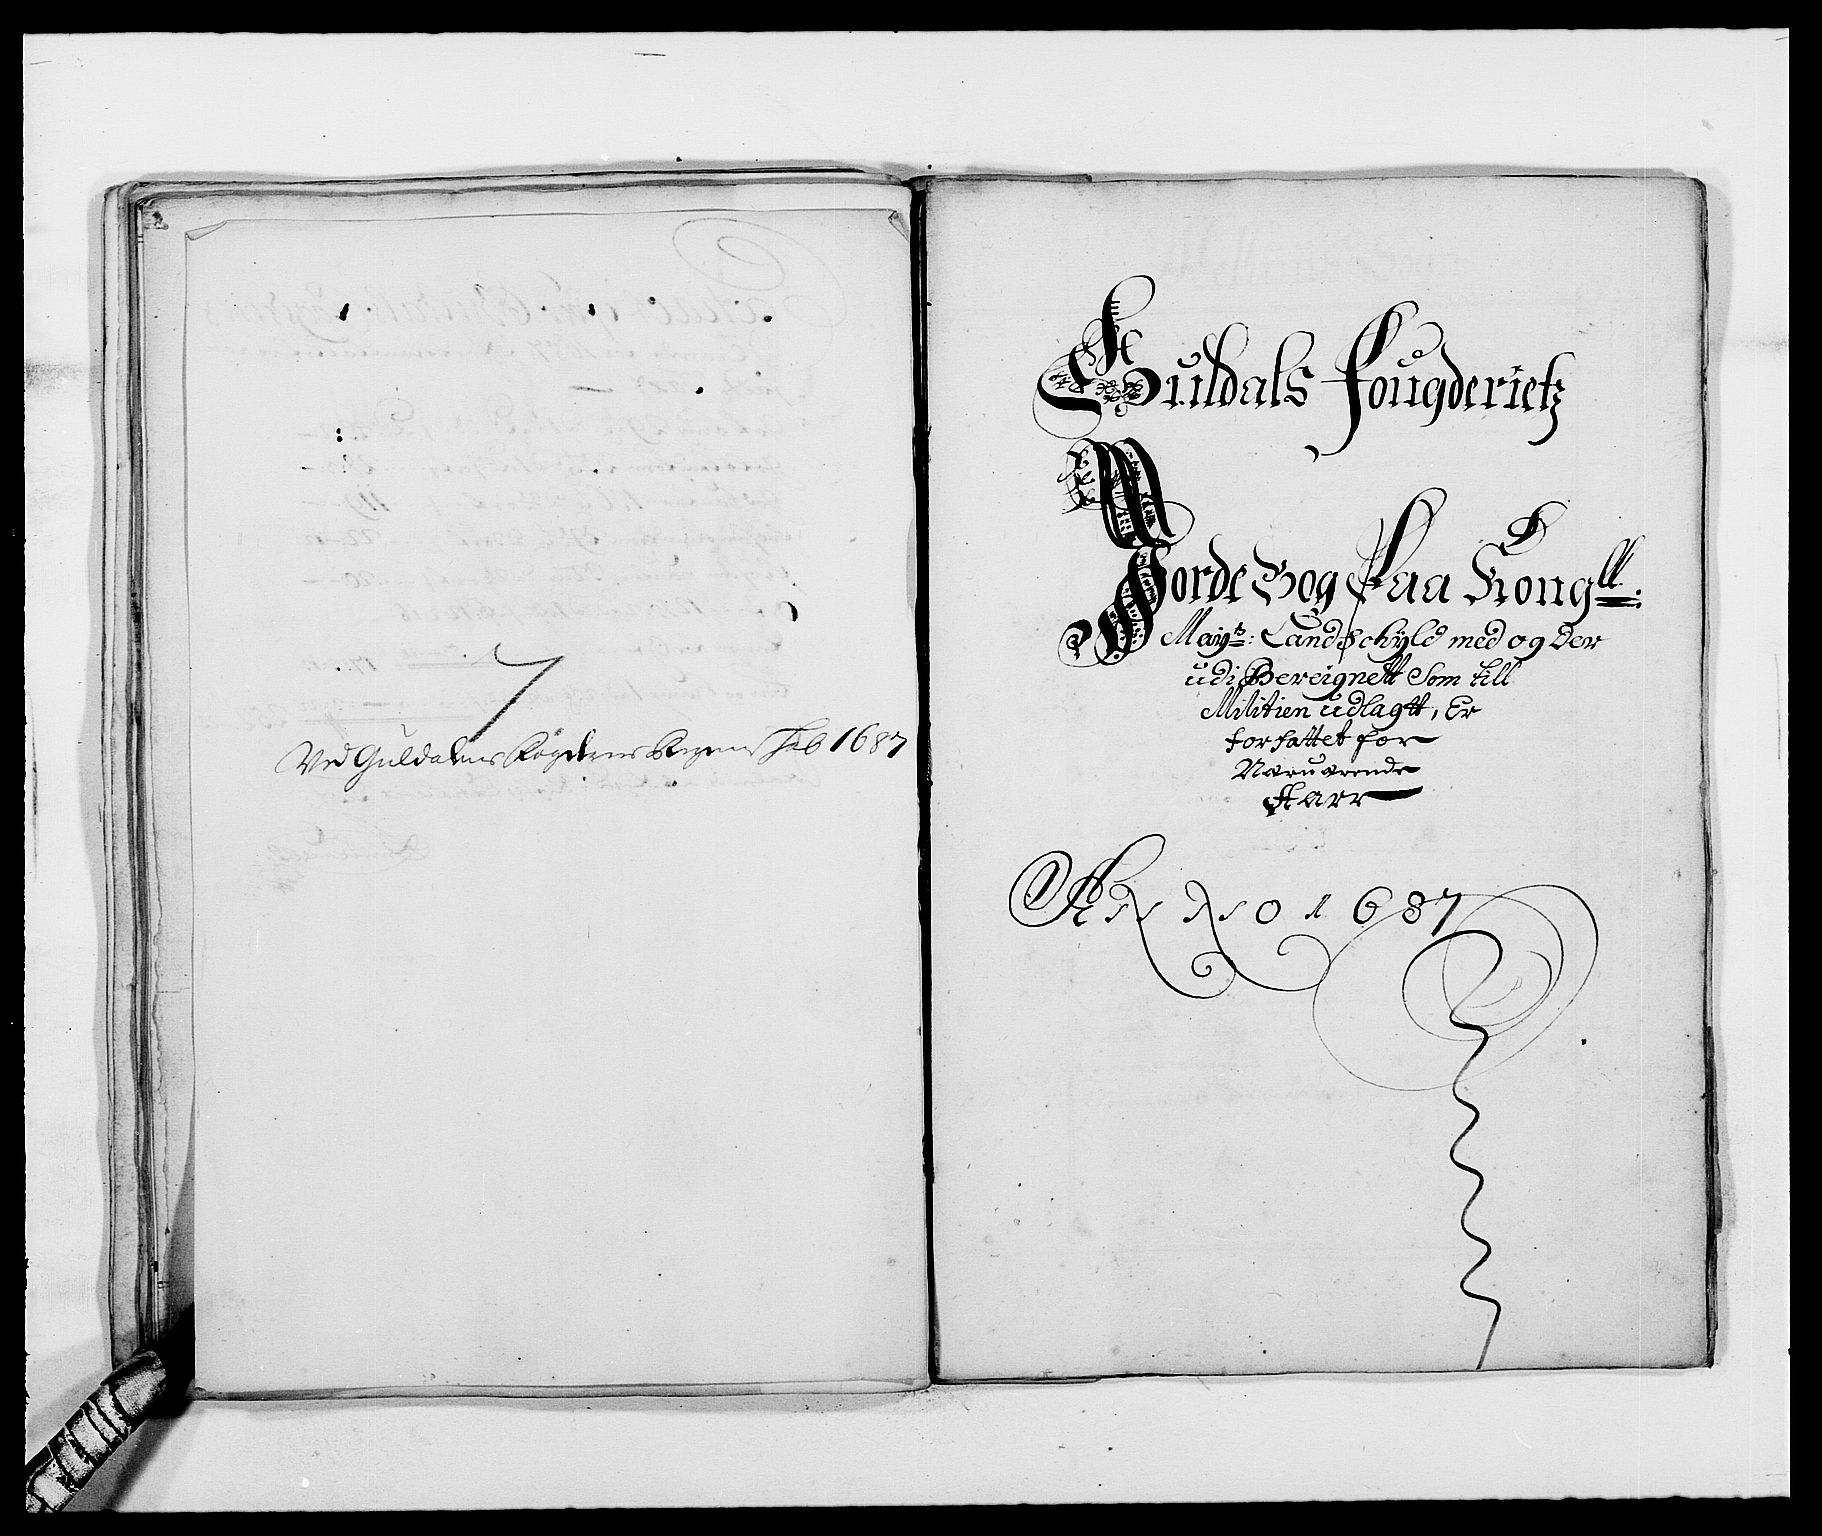 7
Ved Guldalens Fogderies Regenschab 1687
Guldals Fougderietz
Jorde Bog Paa Kongll:
Mayts: Landschyld med og Der
udi Bereignett Som till
Militien udlagtt, Er
forfattet for
Nærværende
Aarr
ANNO 1687